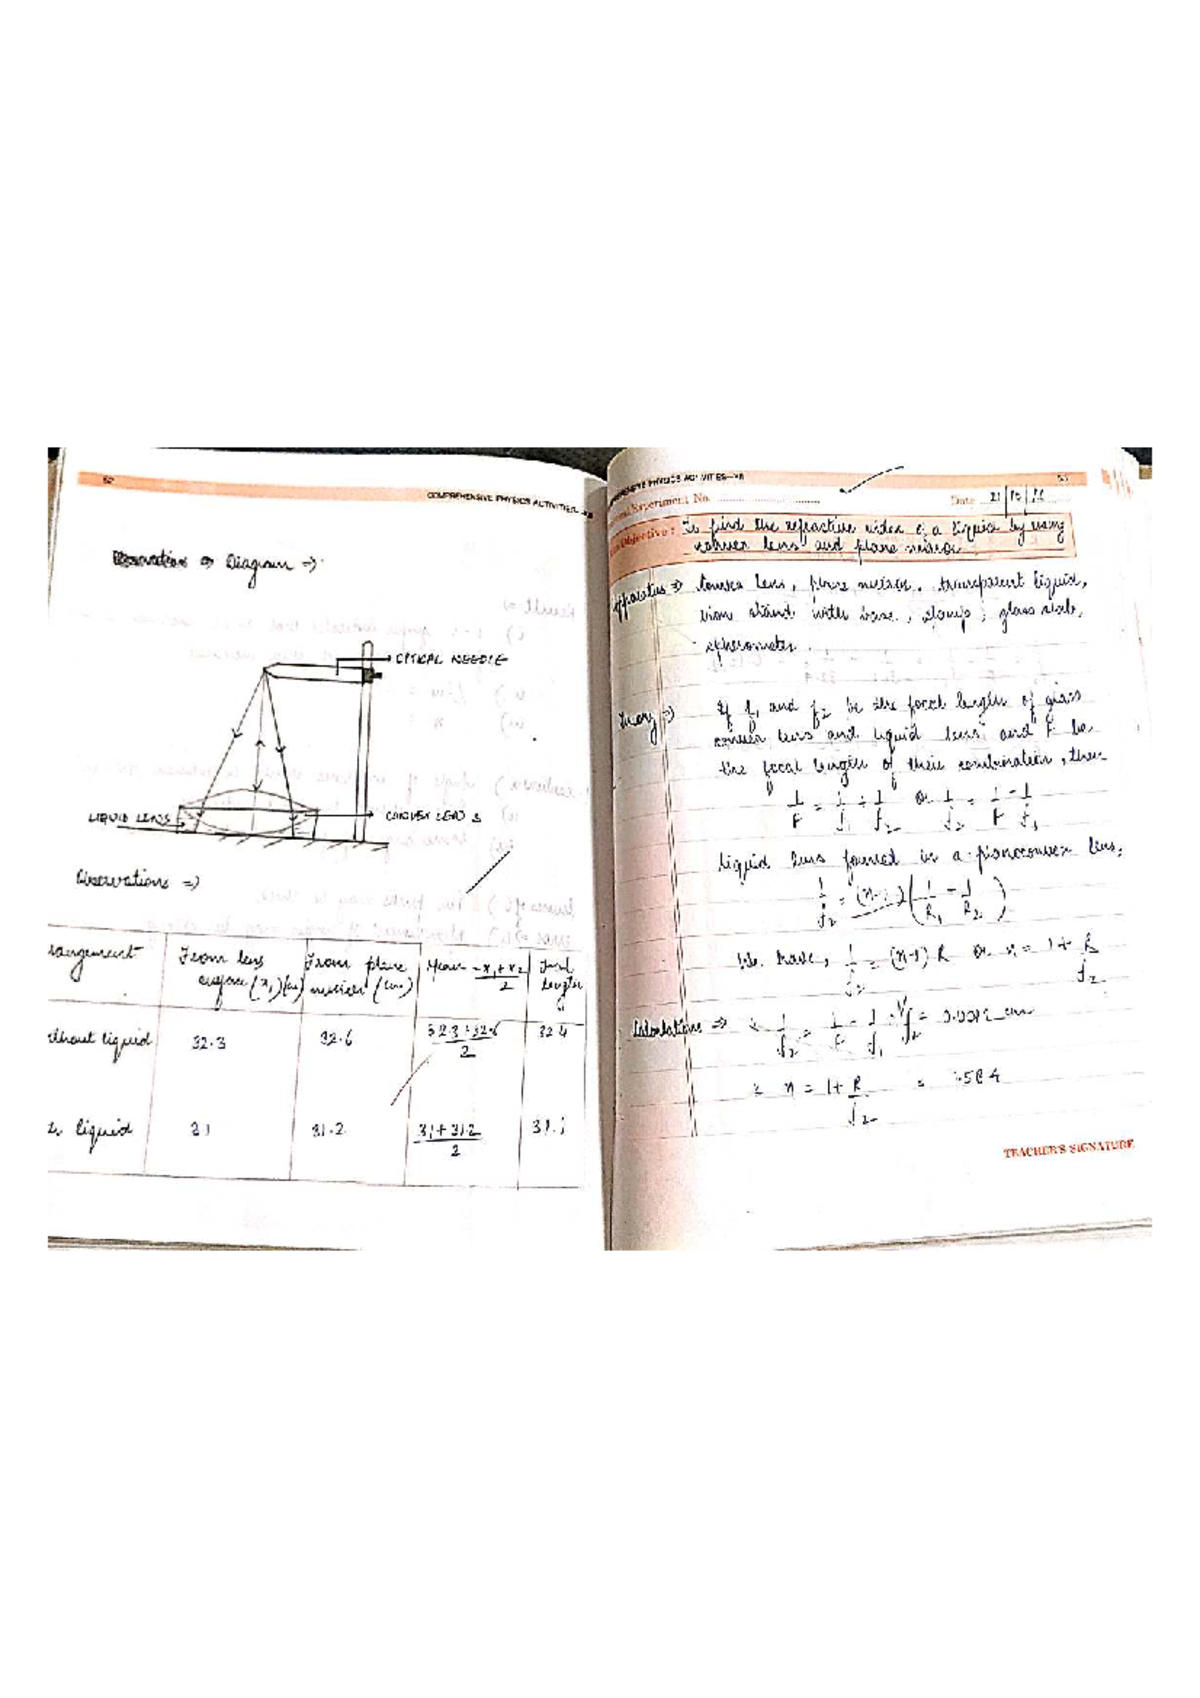 52
COMPREHENSIVE PHYSICS ACTIVITIES—XII
Diagram ⇒
OPTICAL NEEDLE
LIQUID LENS
CONVEX LENS
Observations ⇒
rangement
From lens surface (x₁) (cm)
From plane mirror (cm)
Mean = x₁ + x₂ / 2
Focal length
without liquid
32.3
32.6
32.3 + 32.6 / 2
32.4
liquid
31
31.2
31 + 31.2 / 2
31.1
PHYSICS ACTIVITIES—XII
53
Experiment No.
Date
Objective : To find the refractive index of a liquid by using
convex lens and plane mirror
Apparatus ⇒ Convex lens, plane mirror, transparent liquid,
iron stand with base, clamp, glass slab,
spherometer.
Theory ⇒ If f₁ and f₂ be the focal length of glass
convex lens and liquid lens and F be
the focal length of their combination, then
1/F = 1/f₁ + 1/f₂ or 1/f₂ = 1/F - 1/f₁
liquid lens formed is a planoconvex lens,
1/f₂ = (n-1) (1/R₁ - 1/R₂)
We have, 1/f₂ = (n-1) R or n = 1 + R/f₂
Calculations ⇒ 1/f₂ = 1/F - 1/f₁
n = 1 + R/f₂ =
TEACHER'S SIGNATURE